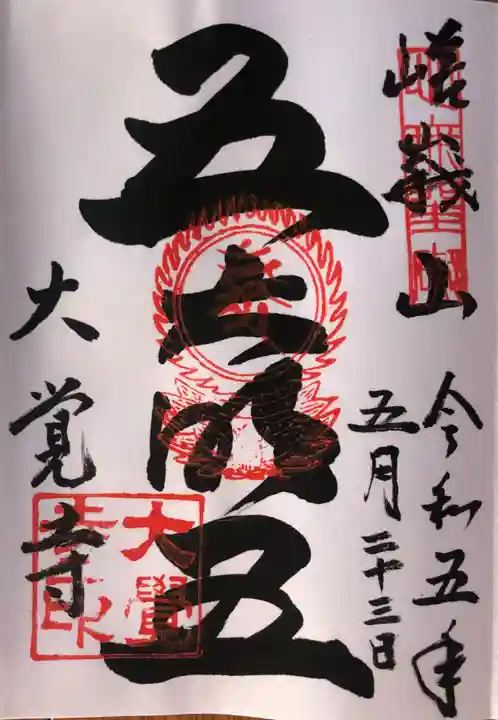 嵯峩山
令和五年
五月二十三日
五大明王
大覚寺
大覺
寺印